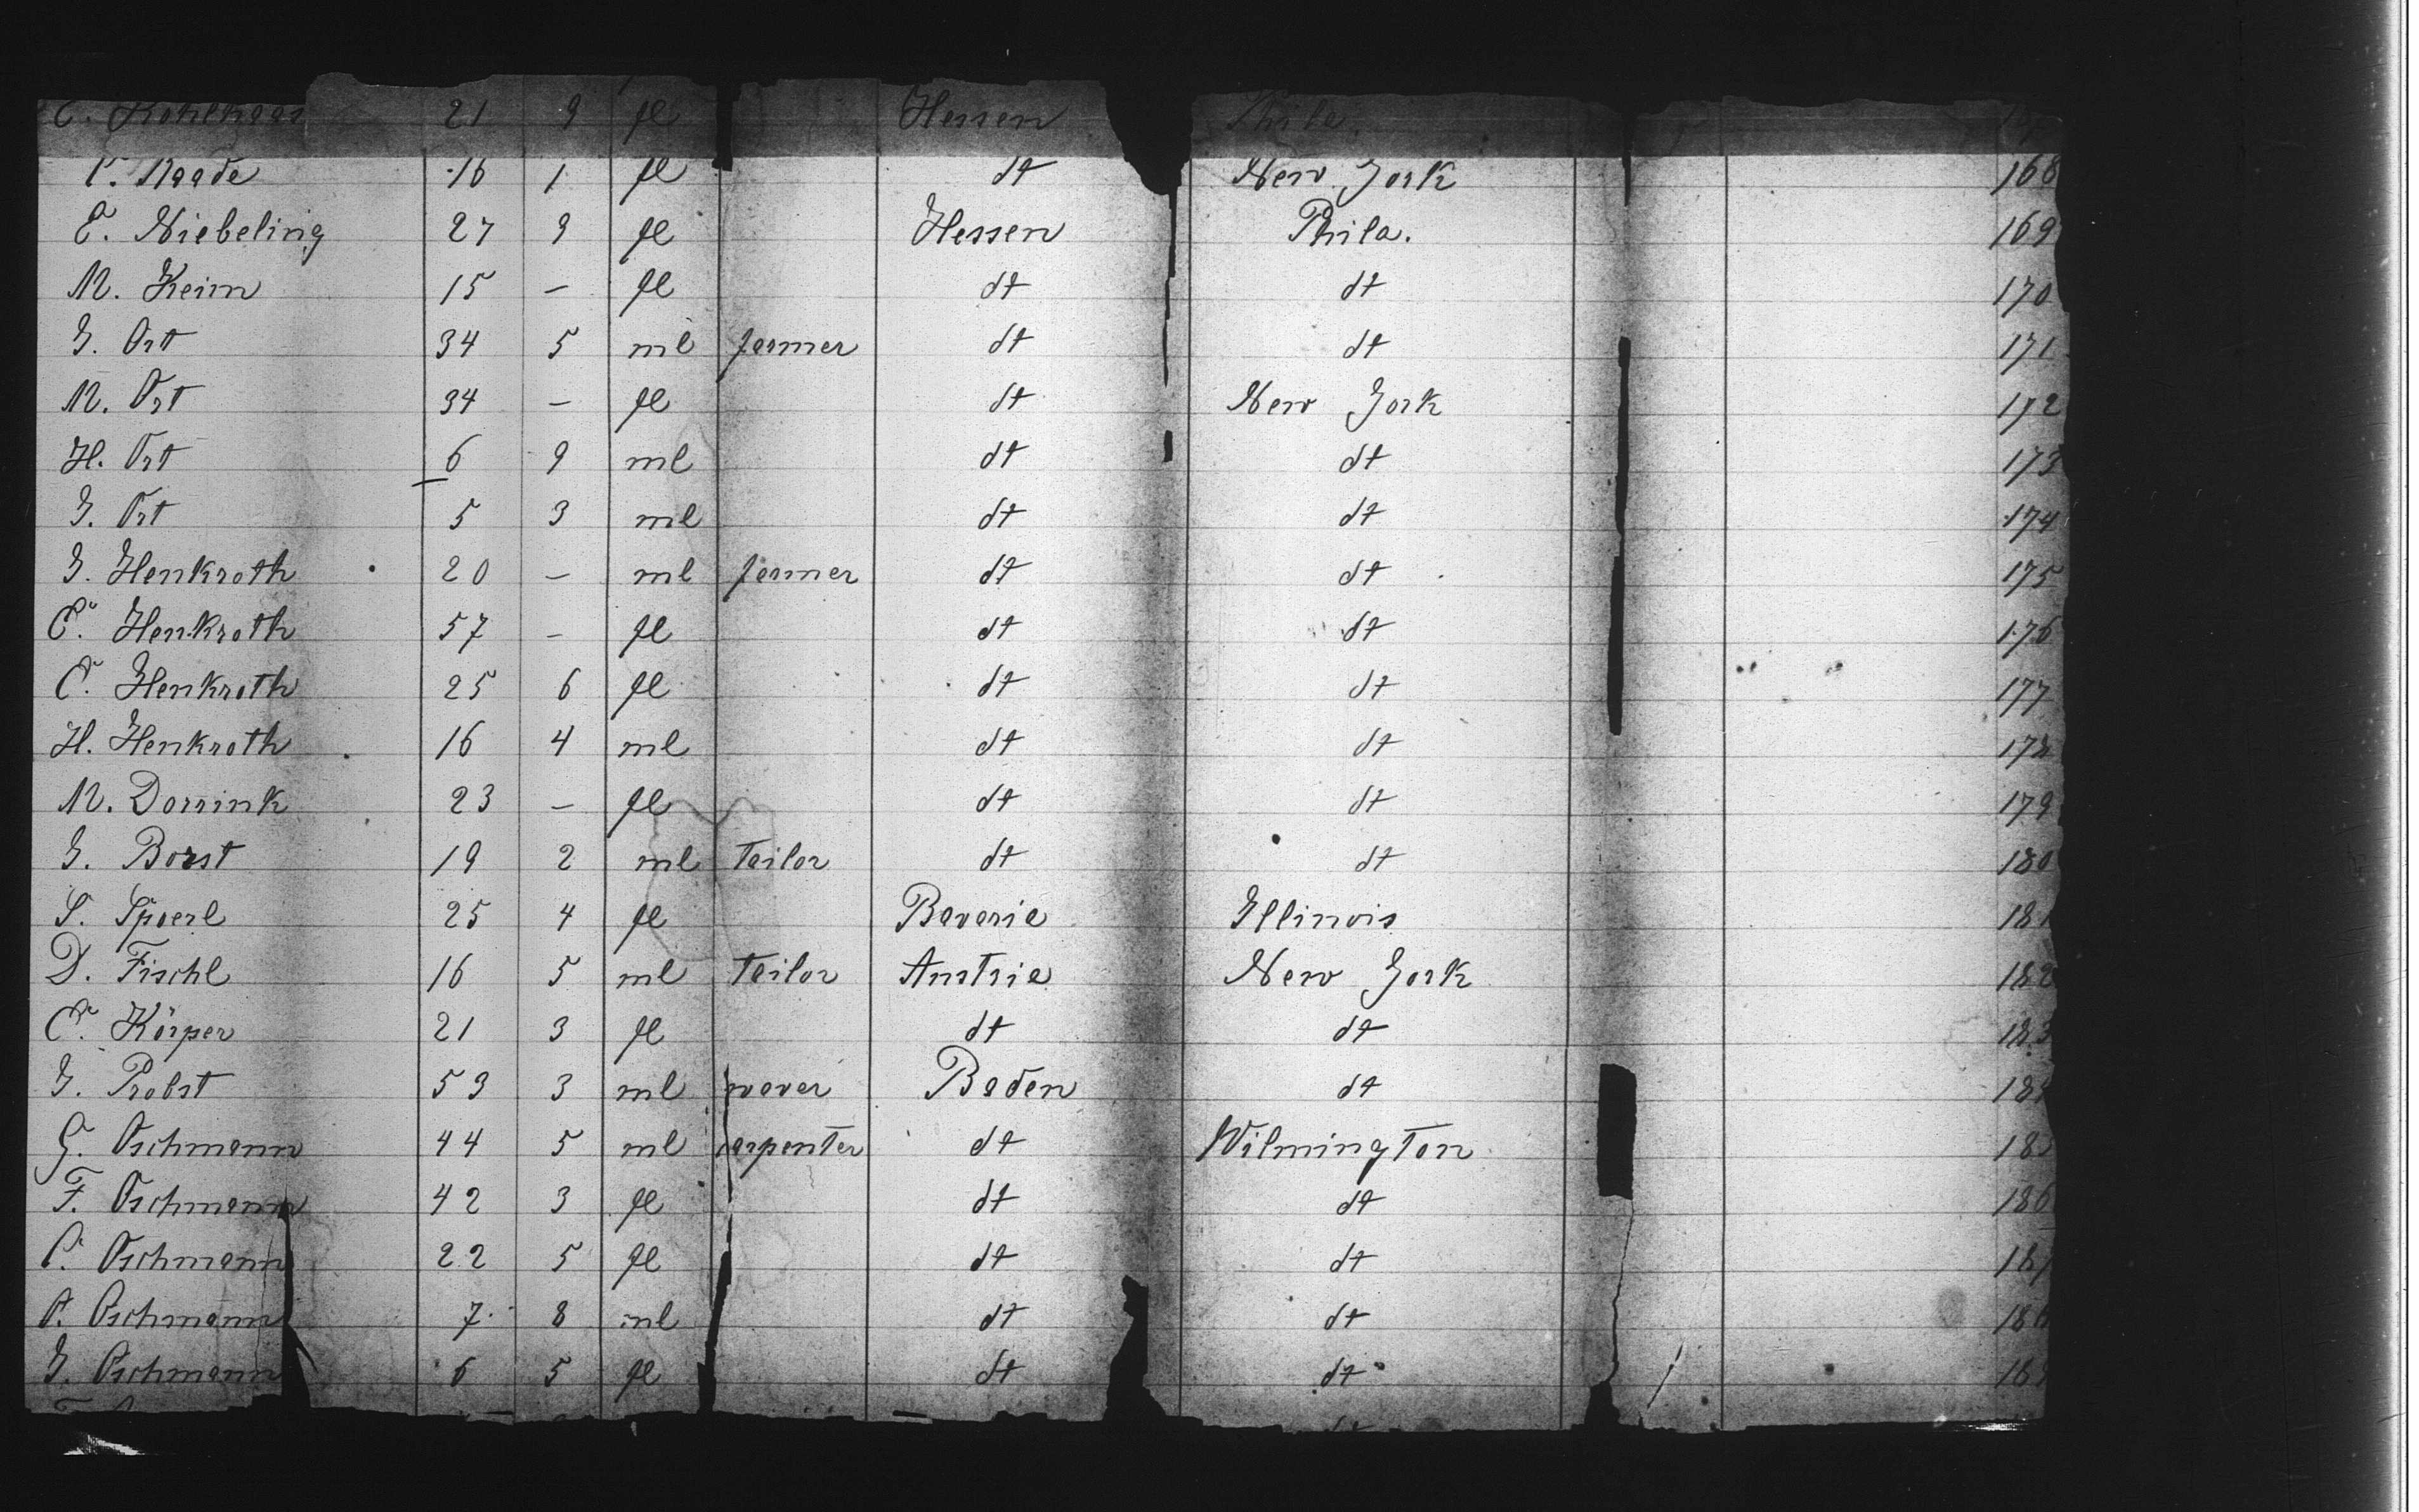 C. Kohlhaas 21 9 fl Hessen Phila.
C. Raade 16 1 fl dt New York 168
E. Niebeling 27 9 fl Hessen Phila. 169
M. Keim 15 — fl dt dt 170
J. Ort 34 5 ml farmer dt dt 171
M. Ort 34 — fl dt New York 172
H. Ort 6 9 ml dt dt 173
J. Ort 5 3 ml dt dt 174
J. Henkroth 20 — ml farmer dt dt 175
C. Henkroth 57 — fl dt dt 176
C. Henkroth 25 6 fl dt dt 177
H. Henkroth 16 4 ml dt dt 178
M. Dorrink 23 — fl dt dt 179
J. Borst 19 2 ml Tailor dt dt 180
S. Spoerl 25 4 fl Bavaria Illinois 181
D. Fischl 16 5 ml Tailor Austria New York 182
C. Körper 21 3 fl dt dt 183
J. Probst 53 3 ml wever Baden dt 184
G. Oschmann 44 5 ml carpenter dt Wilmington 185
F. Oschmann 42 3 fl dt dt 186
C. Oschmann 22 5 fl dt dt 187
A. Oschmann 7 8 ml dt dt 188
J. Oschmann 6 5 fl dt dt 189